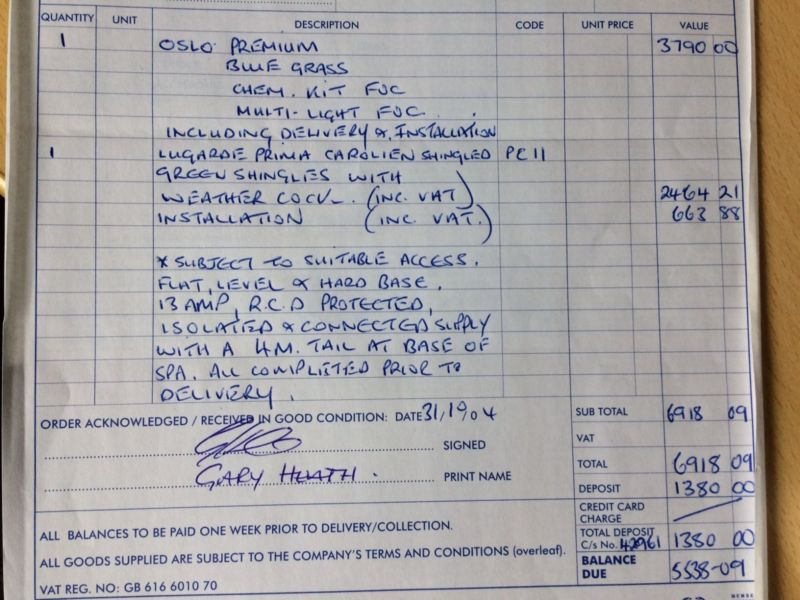 QUANTITY UNIT DESCRIPTION CODE UNIT PRICE VALUE
1 OSLO PREMIUM 3790 00
BLUE GRASS
CHEM. KIT FOC
MULTI-LIGHT FOC.
INCLUDING DELIVERY & INSTALLATION
1 LUGARDE PRIMA CAROLIEN SHINGLED PC11
GREEN SHINGLES WITH
WEATHER (INC. VAT) 2464 21
INSTALLATION (INC. VAT.) 663 88
* SUBJECT TO SUITABLE ACCESS.
FLAT, LEVEL & HARD BASE.
13 AMP, R.C.D PROTECTED,
ISOLATED & CONNECTED SUPPLY
WITH A 4M. TAIL AT BASE OF
SPA. ALL COMPLETED PRIOR TO
DELIVERY.
ORDER ACKNOWLEDGED / RECEIVED IN GOOD CONDITION: DATE
SIGNED
GARY PRINT NAME
SUB TOTAL 6918 09
VAT
TOTAL 6918 09
DEPOSIT 1380 00
CREDIT CARD
CHARGE
TOTAL DEPOSIT
C/s No. 42961 1380 00
BALANCE
DUE 5538-09
ALL BALANCES TO BE PAID ONE WEEK PRIOR TO DELIVERY/COLLECTION.
ALL GOODS SUPPLIED ARE SUBJECT TO THE COMPANY'S TERMS AND CONDITIONS (overleaf).
VAT REG. NO: GB 616 6010 70